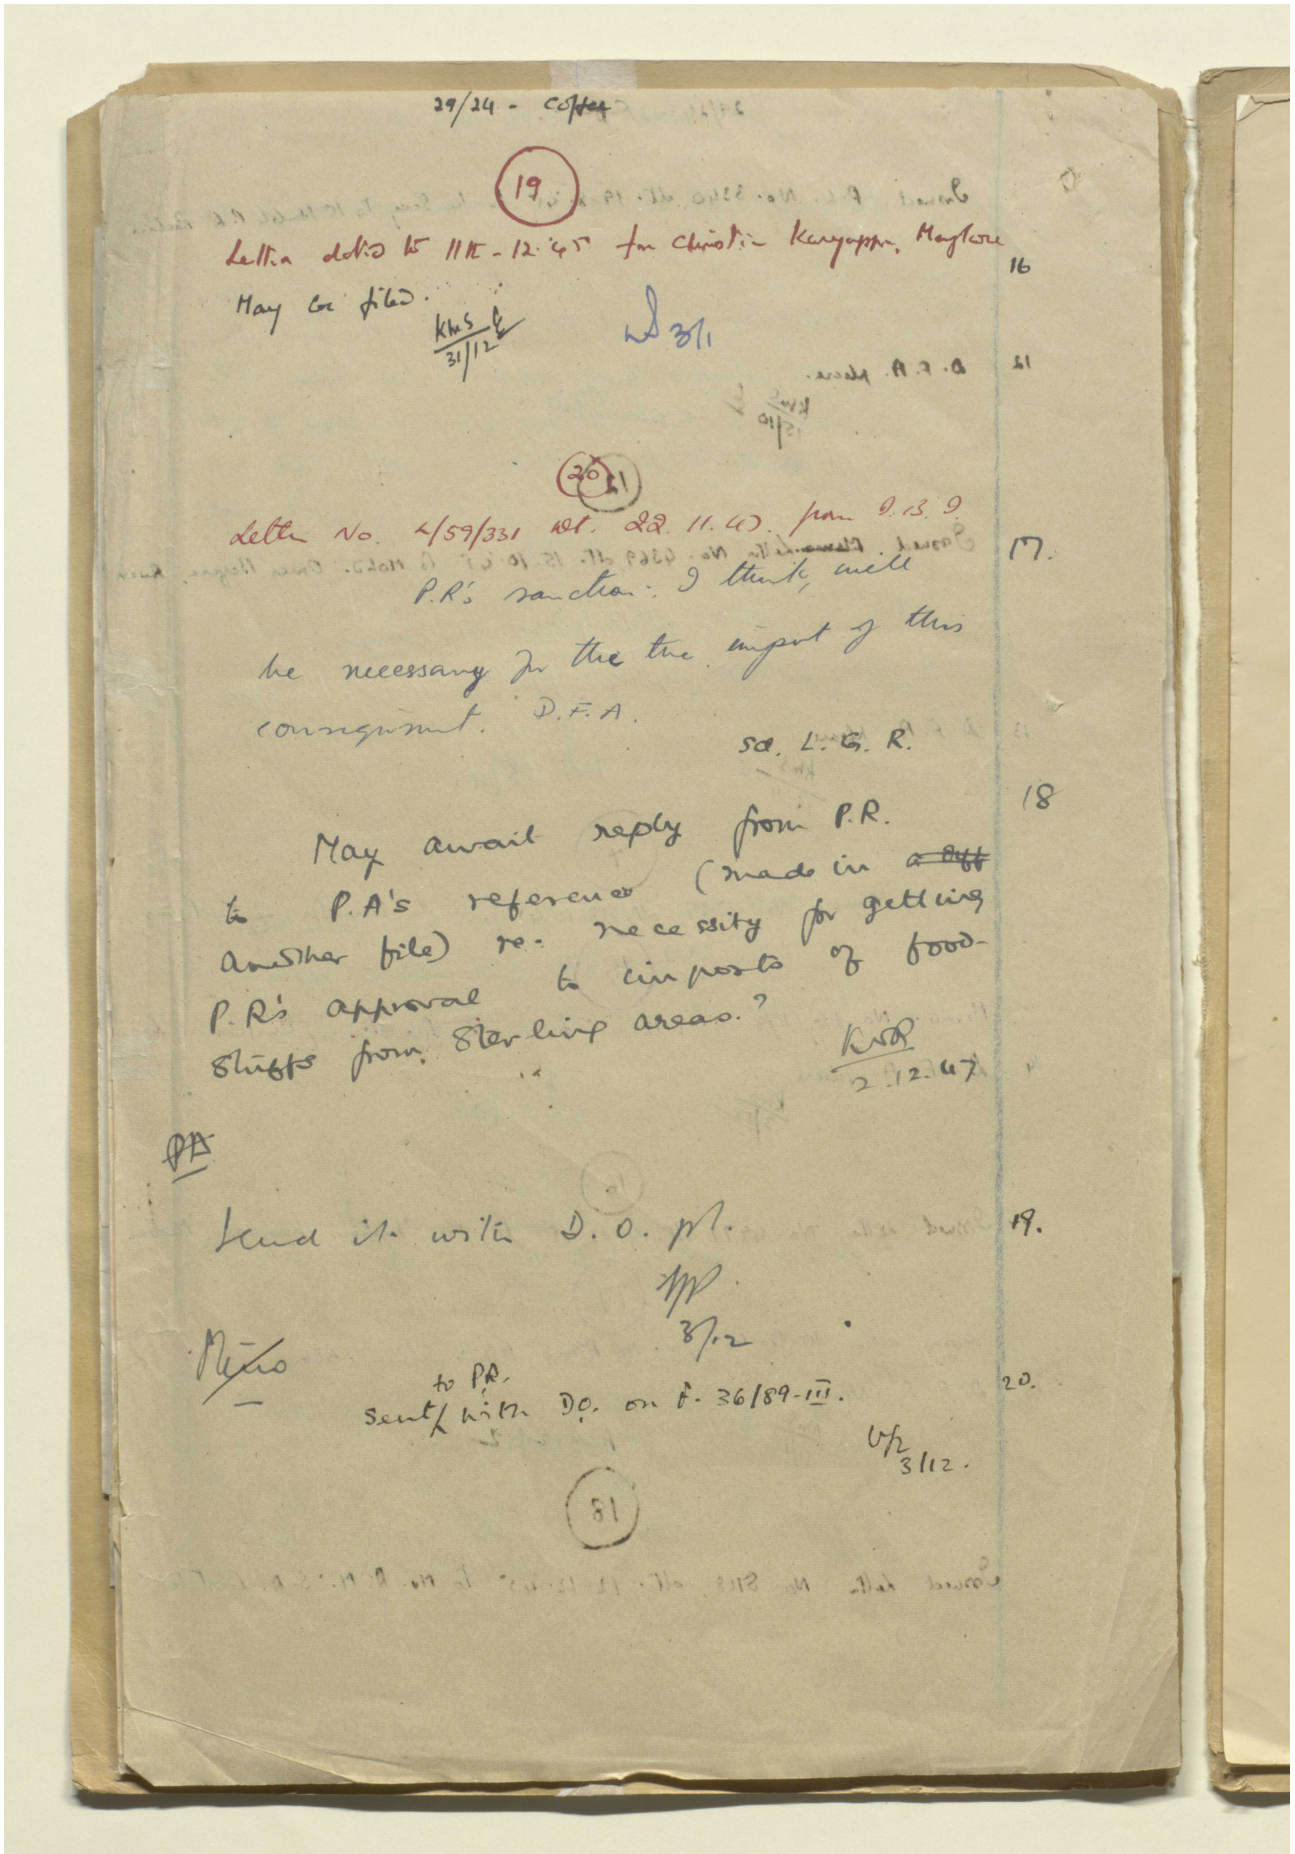 29/24 - Coffee
19
Letter dated the 11th - 12.45 from Christie Karyappa, Maglore
16
May be filed.
KMS
31/12
3/1
20
Letter No. 4/59/331 dt. 22.11.47. from
17.
P.R's sanction, I think, will
be necessary for the the import of this
consignment. D.F.A.
sd. L. G. R.
18
May await reply from P.R.
to P.A's reference (made in a diff
another file) re. necessity for getting
P.R's approval to imports of food-
stuffs from Sterling areas.?
2.12.47
PA
Send it with D.O. pl.
19.
3/12
to P.R.
sent with DO. on F. 36/89-III.
20.
3/12.
18